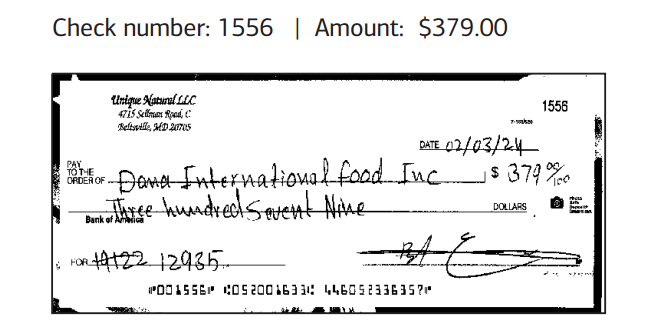 Check number: 1556 | Amount: $379.00
Unique Natural LLC
4715 Sellman Road, C
Beltsville, MD 20705
1556
DATE 02/03/24
PAY
TO THE
ORDER OF Dana International food Inc $ 379 00/100
Three hundred Sevent Nine DOLLARS
Bank of America
FOR 19122 12935
⑈001556⑈ ⑆052001633⑆ 446052336357⑈